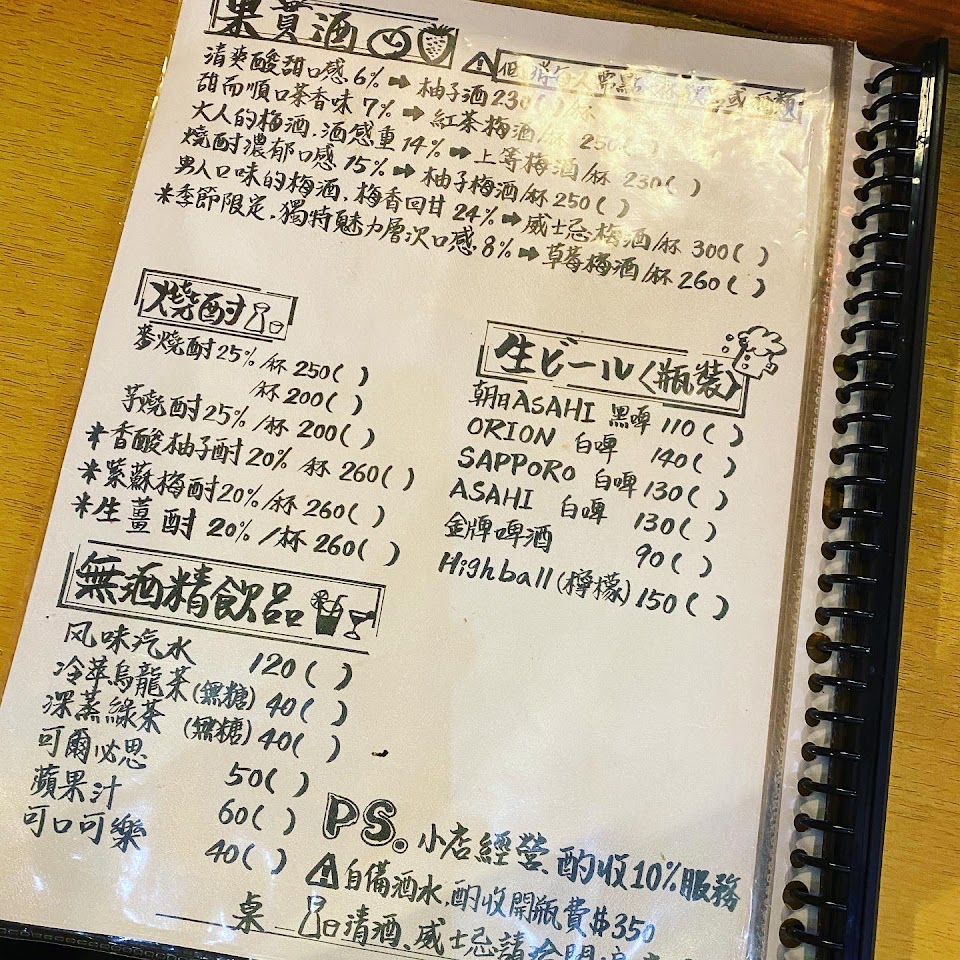 果實酒
清爽酸甜口感 6% ➡ 柚子酒 230( )/杯
甜而順口茶香味 7% ➡ 紅茶梅酒/杯 250( )
大人的梅酒.酒感重 14% ➡ 上等梅酒/杯 230( )
燒酎濃郁口感 15% ➡ 柚子梅酒/杯 250( )
男人口味的梅酒,梅香回甘 24% ➡ 威士忌梅酒/杯 300( )
*季節限定.獨特魅力層次口感 8% ➡ 草莓梅酒/杯 260( )
燒酎
麥燒酎25%/杯 250( )
杯 200( )
芋燒酎25%/杯 200( )
*香酸柚子酎 20% 杯 260( )
*紫蘇梅酎20%/杯 260( )
*生薑酎 20% /杯 260( )
生ビール〈瓶裝〉
朝日ASAHI 黑啤 110( )
ORION 白啤 140( )
SAPPORO 白啤 130( )
ASAHI 白啤 130( )
金牌啤酒 90( )
Highball(檸檬) 150( )
無酒精飲品
风味汽水 120( )
冷萃烏龍茶(無糖) 40( )
深蒸綠茶 (無糖) 40( )
可爾必思 50( )
蘋果汁 60( )
可口可樂 40( )
PS. 小店經營,酌收10%服務
自備酒水,酌收開瓶費$350
桌
清酒、威士忌請